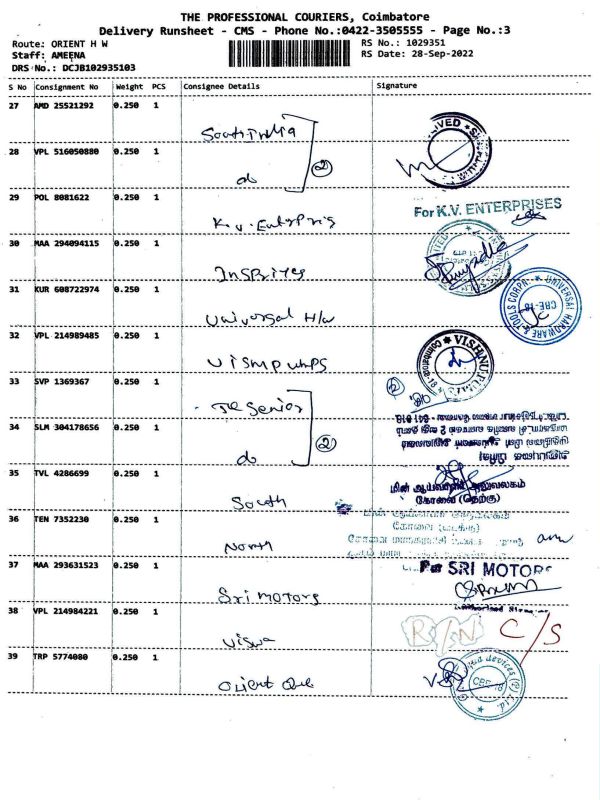 THE PROFESSIONAL COURIERS, Coimbatore
Delivery Runsheet - CMS - Phone No.:0422-3505555 - Page No.:3
Route: ORIENT H W RS No.: 1029351
Staff: AMEENA RS Date: 28-Sep-2022
DRS No.: DCJB102935103
S No Consignment No Weight PCS Consignee Details Signature
27 AMD 25521292 0.250 1
South India
28 VPL 516050880 0.250 1
do
2
29 POL 8081622 0.250 1
For K.V. ENTERPRISES
K.V. Enterpris
30 MAA 294094115 0.250 1
31 KUR 608722974 0.250 1
UNIVERSAL HARDWARE & TOOLS CORPN. CBE-18
Universal H/w
32 VPL 214989485 0.250 1
VISHNU PUMPS Coimbatore-18
33 SVP 1369367 0.250 1
2
Senior
34 SLM 304178656 0.250 1
do
2
35 TVL 4286699 0.250 1
மின் ஆய்வாளர் அலுவலகம்
கோவை (தெற்கு)
South
36 TEN 7352230 0.250 1
கோவை (வடக்கு)
North
37 MAA 293631523 0.250 1
For SRI MOTORS
Sri Motors
38 VPL 214984221 0.250 1
R/N C/S
Viswa
39 TRP 5774080 0.250 1
Orient